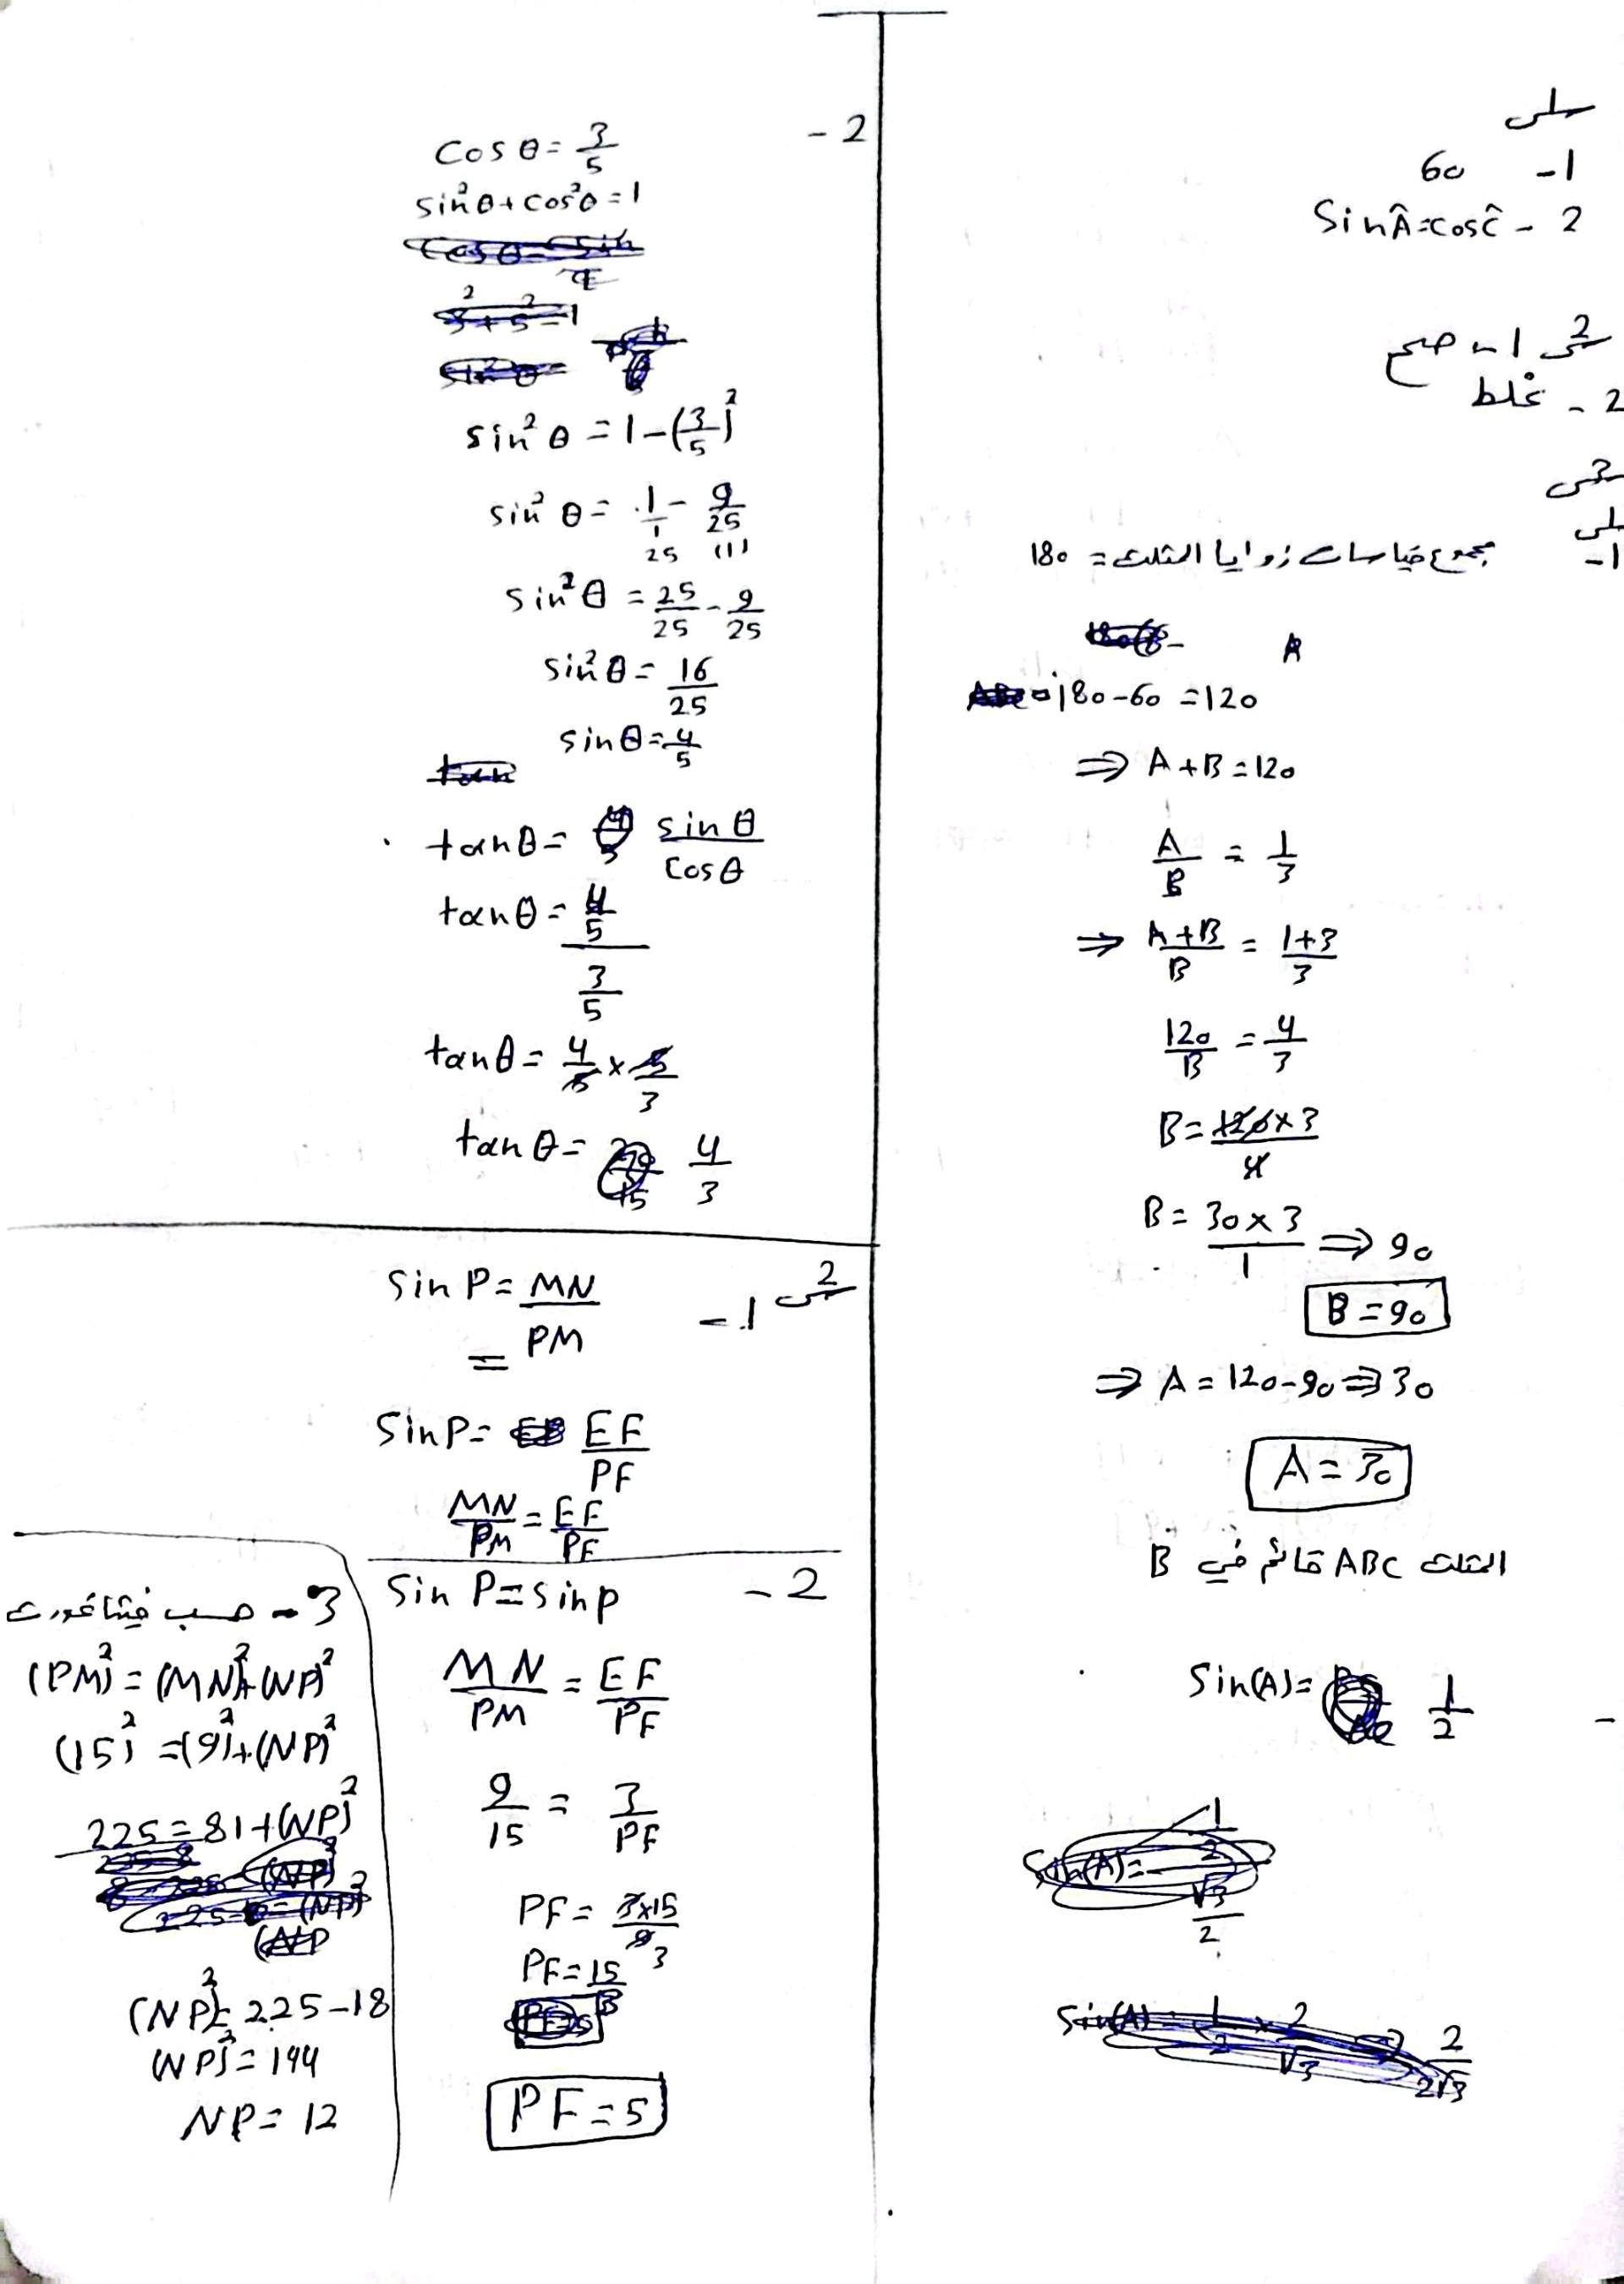 س1
1- 60
2- Sin Â = cos Ĉ
س2 1- صح
2- غلط
س3
س1
1-
مجموع قياسات زوايا المثلث = 180
A
180-60 =120
⇒ A+B=120
A/B = 1/3
⇒ A+B/B = 1+3/3
120/B = 4/3
B= 120×3/4
B= 30×3/1 ⇒ 90
B=90
⇒ A = 120-90 ⇒ 30
A = 30
المثلث ABC قائم في B
Sin(A)= 1/2
2-
Cos θ = 3/5
sin²θ + cos²θ = 1
sin²θ = 1-(3/5)²
sin²θ = 1/1 - 9/25
25 (1)
sin²θ = 25/25 - 9/25
sin²θ = 16/25
sinθ = 4/5
tanθ = sinθ/cosθ
tanθ = 4/5 / 3/5
tanθ = 4/5 × 5/3
tanθ = 4/3
س2 1-
Sin P = MN/PM
=
Sin P = EF/PF
MN/PM = EF/PF
2- Sin P = sin p
MN/PM = EF/PF
9/15 = 3/PF
PF = 3×15/9 3
PF = 15/3
PF = 5
3- حسب فيثاغورث
(PM)² = (MN)²+(NP)²
(15)² = (9)²+(NP)²
225 = 81+(NP)²
(NP)² = 225-18
(NP)² = 144
NP = 12